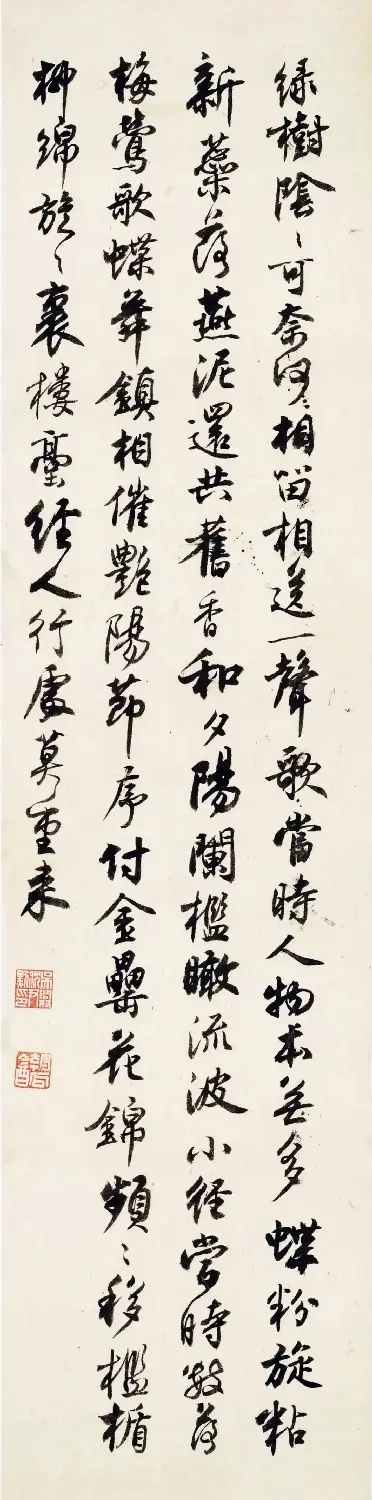 緑樹陰〻可奈何相留相送一聲歌當時人物本無多蝶粉旋粘
新蘂落燕泥還共舊香和夕陽闌檻瞰流波小徑當時數落
梅鶯歌蝶舞鎮相催艷陽節序付金罍花錦頻〻移檻楯
柳綿旋〻裹樓臺經人行處莫重来